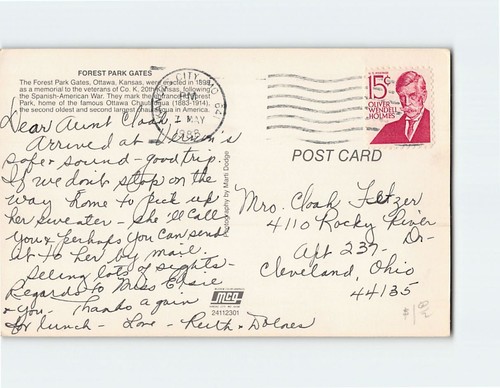 FOREST PARK GATES
The Forest Park Gates, Ottawa, Kansas, were erected in 1898
as a memorial to the veterans of Co. K, 20th Kansas, following
the Spanish-American War. They mark the entrance to Forest
Park, home of the famous Ottawa Chautauqua (1883-1914),
the second oldest and second largest chautauqua in America.
CITY MO 641
PM
7 MAY
U.S. POSTAGE
15¢
OLIVER
WENDELL
HOLMES
Dear Aunt Cloah,
Arrived at Vernon's
safe & sound - good trip.
If we don't stop on the
way home to pick up
her sweater - She'll call
you & perhaps you can send
it to her by mail.
Seeing lots of sights -
Regards to Miss Elsie
& you - Thanks again
for lunch - Love - Ruth & Dolores
Photography by Marti Dodge
POST CARD
Mrs. Cloah Fetzer
4110 Rocky River
Dr -
Apt 237 -
Cleveland, Ohio
44135
mcg
24112301